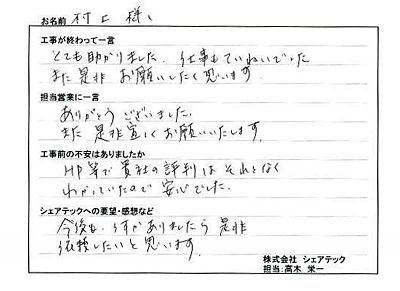 お名前 村上 様
工事が終わって一言
とても助かりました。仕事もていねいでした
また是非 お願いしたく思います。
担当営業に一言
ありがとうございました。
また是非宜しくお願いいたします。
工事前の不安はありましたか
HP等で貴社の評判は それとなく
わかっていたので安心でした。
シェアテックへの要望・感想など
今後も ありましたら 是非
依頼したいと思います。
株式会社 シェアテック
担当:高木 栄一